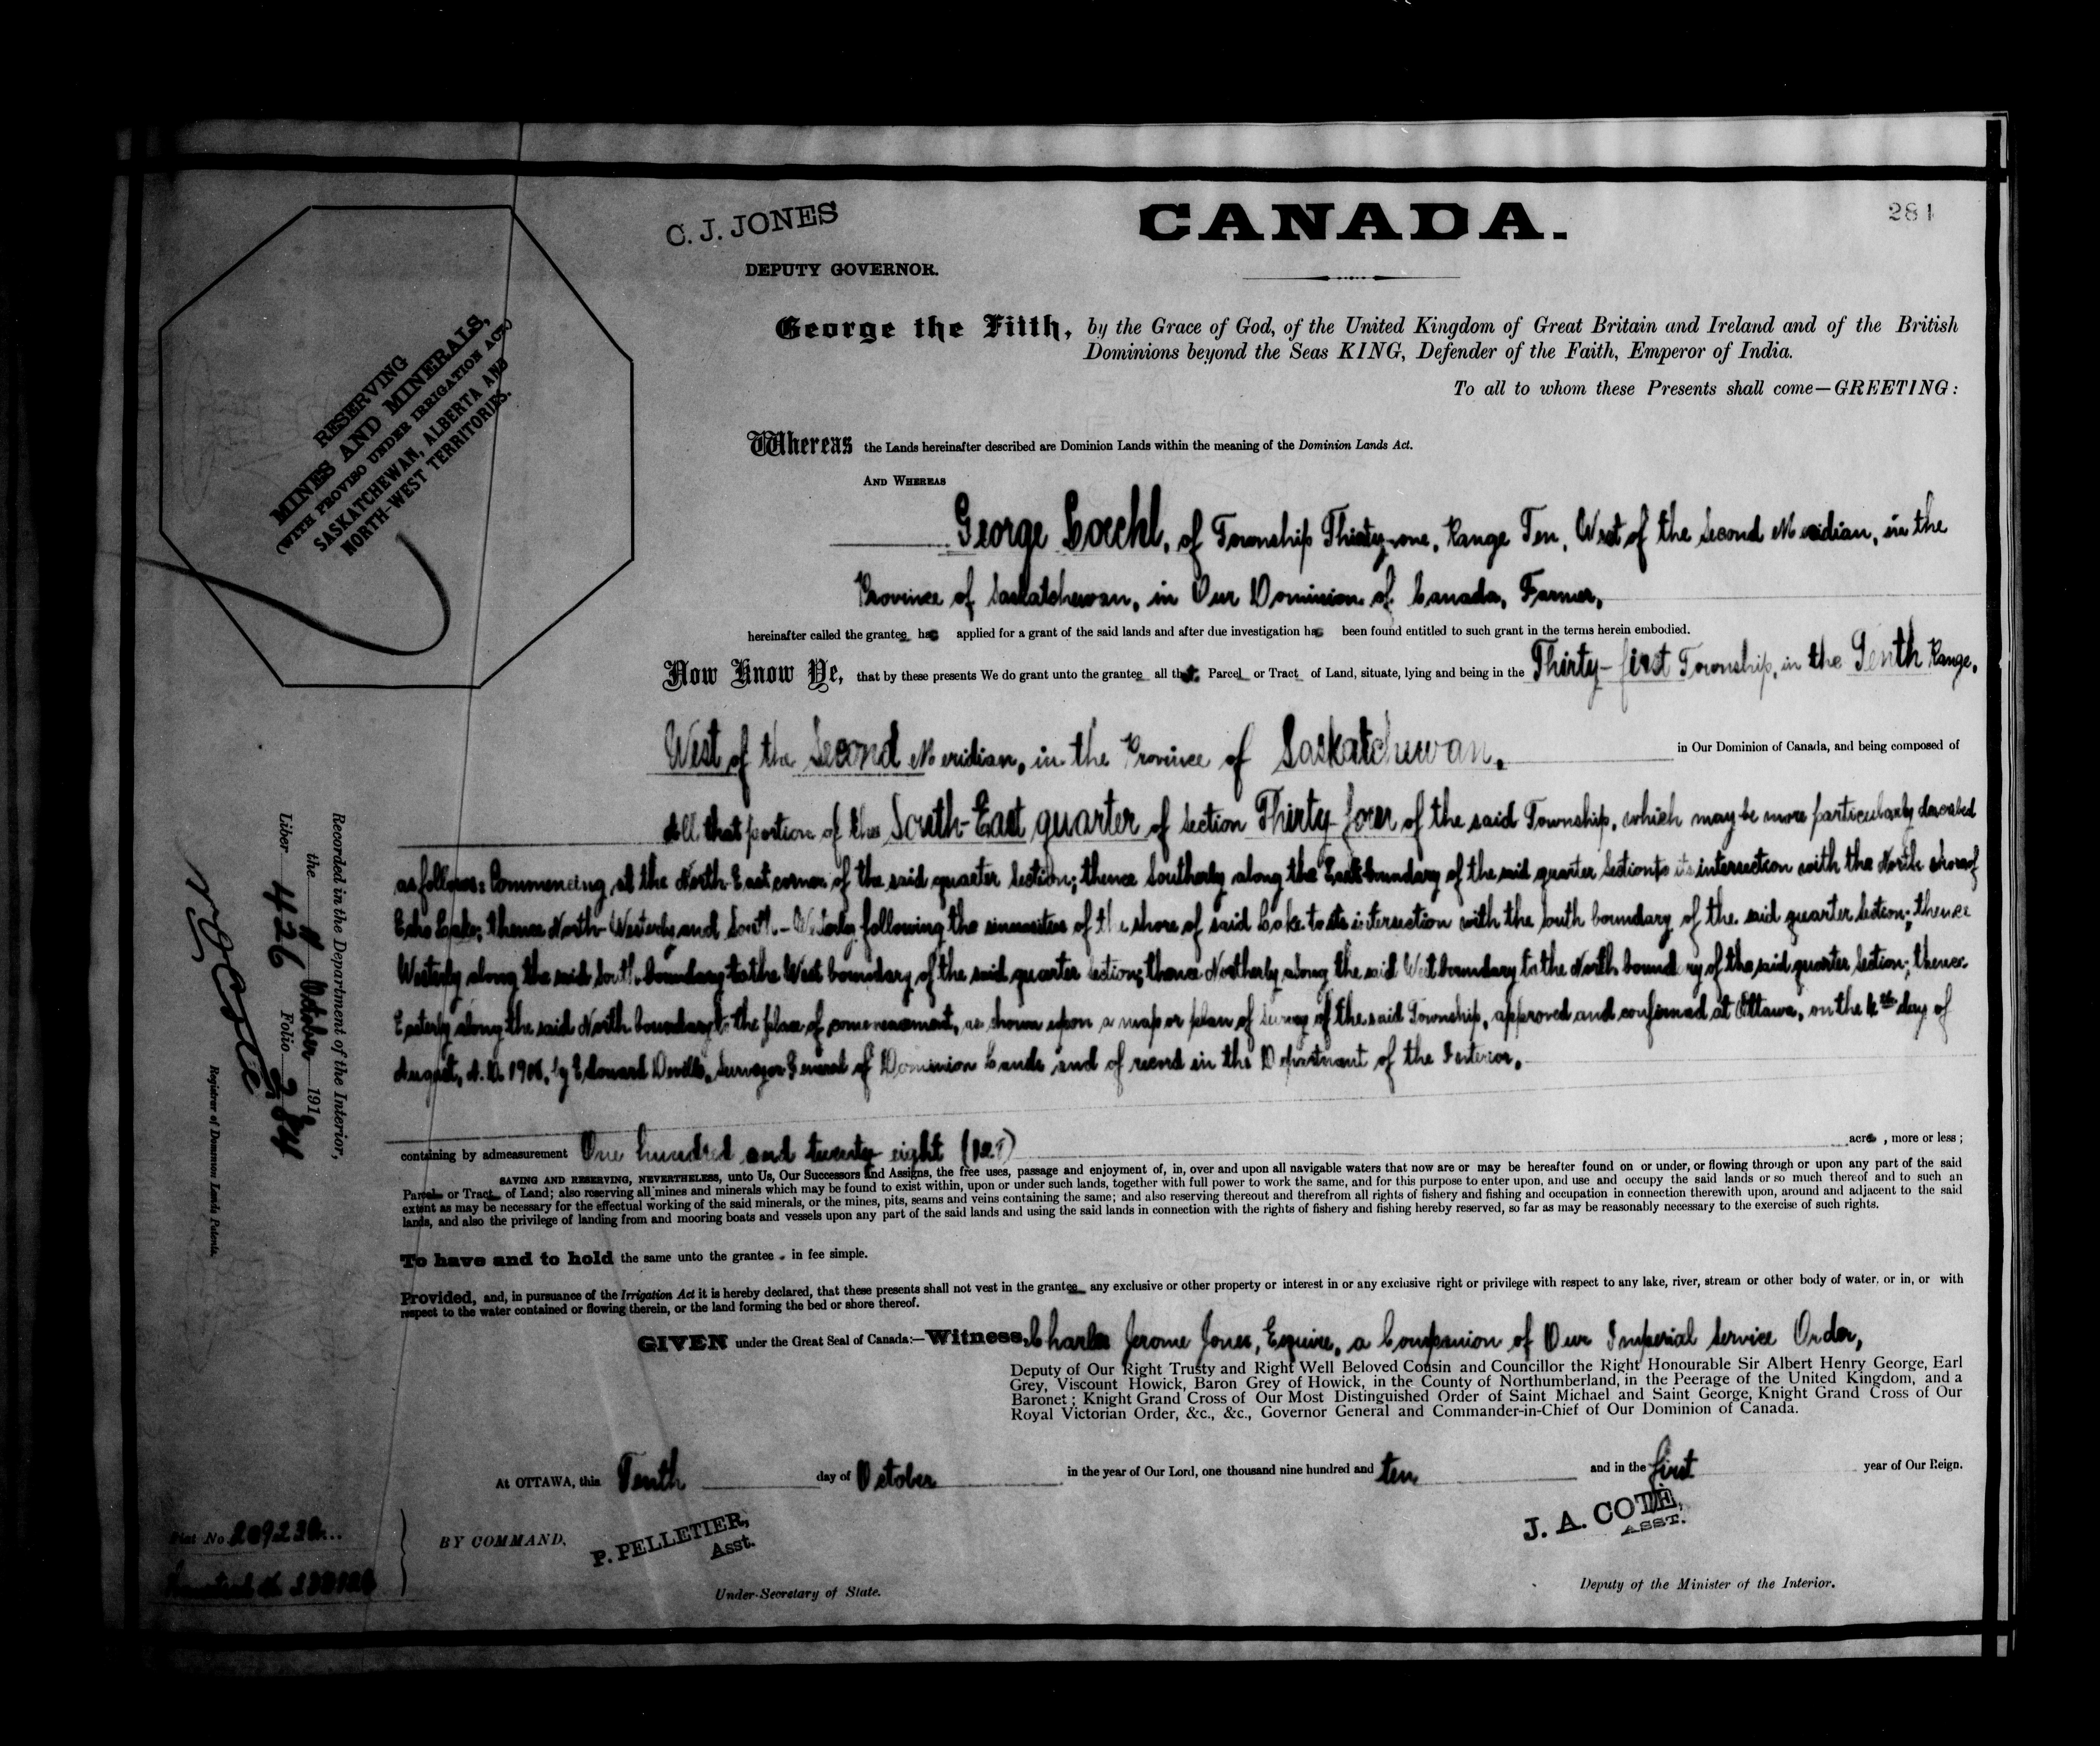 C. J. JONES
DEPUTY GOVERNOR.
CANADA.
281
RESERVING
MINES AND MINERALS,
(WITH PROVISO UNDER IRRIGATION ACT.)
SASKATCHEWAN, ALBERTA AND
NORTH-WEST TERRITORIES.
George the Fifth, by the Grace of God, of the United Kingdom of Great Britain and Ireland and of the British
Dominions beyond the Seas KING, Defender of the Faith, Emperor of India.
To all to whom these Presents shall come—GREETING:
Whereas the Lands hereinafter described are Dominion Lands within the meaning of the Dominion Lands Act.
AND WHEREAS
George Loeckl, of Township Thirty-one, Range Ten, West of the Second Meridian, in the
Province of Saskatchewan, in Our Dominion of Canada, Farmer,
hereinafter called the grantee has applied for a grant of the said lands and after due investigation has been found entitled to such grant in the terms herein embodied.
Now Know Ye, that by these presents We do grant unto the grantee all that Parcel or Tract of Land, situate, lying and being in the Thirty-first Township, in the Tenth Range,
West of the Second Meridian, in the Province of Saskatchewan, in Our Dominion of Canada, and being composed of
All that portion of the South-East quarter of Section Thirty-four of the said Township, which may be more particularly described
as follows: Commencing at the North East corner of the said quarter Section; thence Southerly along the East boundary of the said quarter Section to its intersection with the North shore of
Echo Lake; thence North-Westerly and South-Westerly following the sinuosities of the shore of said Lake to its intersection with the South boundary of the said quarter Section; thence
Westerly along the said South boundary to the West boundary of the said quarter Section; thence Northerly along the said West boundary to the North boundary of the said quarter Section; thence
Easterly along the said North boundary to the place of commencement, as shown upon a map or plan of Survey of the said Township, approved and confirmed at Ottawa, on the day of
August, A.D. by Edouard Deville, Surveyor General of Dominion Lands and of record in the Department of the Interior.
containing by admeasurement One hundred and twenty eight acres, more or less;
SAVING AND RESERVING, NEVERTHELESS, unto Us, Our Successors and Assigns, the free uses, passage and enjoyment of, in, over and upon all navigable waters that now are or may be hereafter found on or under, or flowing through or upon any part of the said
Parcel or Tract of Land; also reserving all mines and minerals which may be found to exist within, upon or under such lands, together with full power to work the same, and for this purpose to enter upon, and use and occupy the said lands or so much thereof and to such an
extent as may be necessary for the effectual working of the said minerals, or the mines, pits, seams and veins containing the same; and also reserving thereout and therefrom all rights of fishery and fishing and occupation in connection therewith upon, around and adjacent to the said
lands, and also the privilege of landing from and mooring boats and vessels upon any part of the said lands and using the said lands in connection with the rights of fishery and fishing hereby reserved, so far as may be reasonably necessary to the exercise of such rights.
To have and to hold the same unto the grantee in fee simple.
Provided, and, in pursuance of the Irrigation Act it is hereby declared, that these presents shall not vest in the grantee any exclusive or other property or interest in or any exclusive right or privilege with respect to any lake, river, stream or other body of water, or in, or with
respect to the water contained or flowing therein, or the land forming the bed or shore thereof.
GIVEN under the Great Seal of Canada:—Witness, Charles Jerome Jones, Esquire, a Companion of Our Imperial Service Order,
Deputy of Our Right Trusty and Right Well Beloved Cousin and Councillor the Right Honourable Sir Albert Henry George, Earl
Grey, Viscount Howick, Baron Grey of Howick, in the County of Northumberland, in the Peerage of the United Kingdom, and a
Baronet; Knight Grand Cross of Our Most Distinguished Order of Saint Michael and Saint George, Knight Grand Cross of Our
Royal Victorian Order, &c., &c., Governor General and Commander-in-Chief of Our Dominion of Canada.
At OTTAWA, this Tenth day of October in the year of Our Lord, one thousand nine hundred and ten and in the first year of Our Reign.
BY COMMAND,
P. PELLETIER,
Asst.
Under-Secretary of State.
J. A. COTE,
ASST.
Deputy of the Minister of the Interior.
Recorded in the Department of the Interior,
the October 191
Liber 426 Folio 281
Registrar of Dominion Lands Patents.
Fiat No